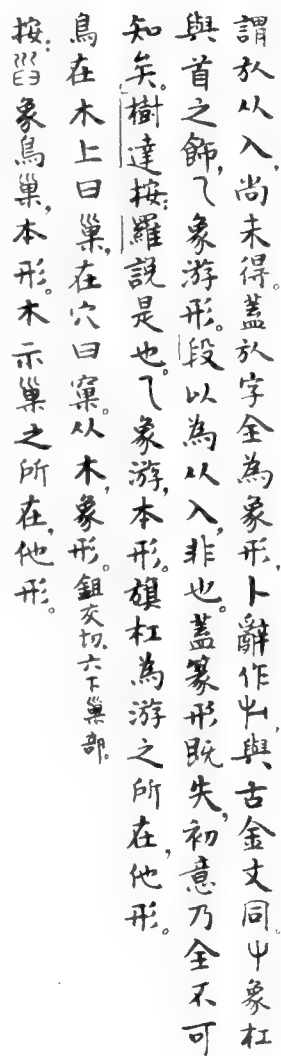 謂㫃从入，尚未得。蓋㫃字全為象形，卜辭作，與古金文同。屮象杠
與首之飾，乁象游形。段以為从入，非也。蓋篆形既失，初意乃全不可
知矣。樹達按：羅說是也。乁象游，本形。旗杠為游之所在，他形。
鳥在木上曰巢，在穴曰窠。从木，象形。鉏交切。六下巢部。
按：𦥑象鳥巢，本形。木示巢之所在，他形。